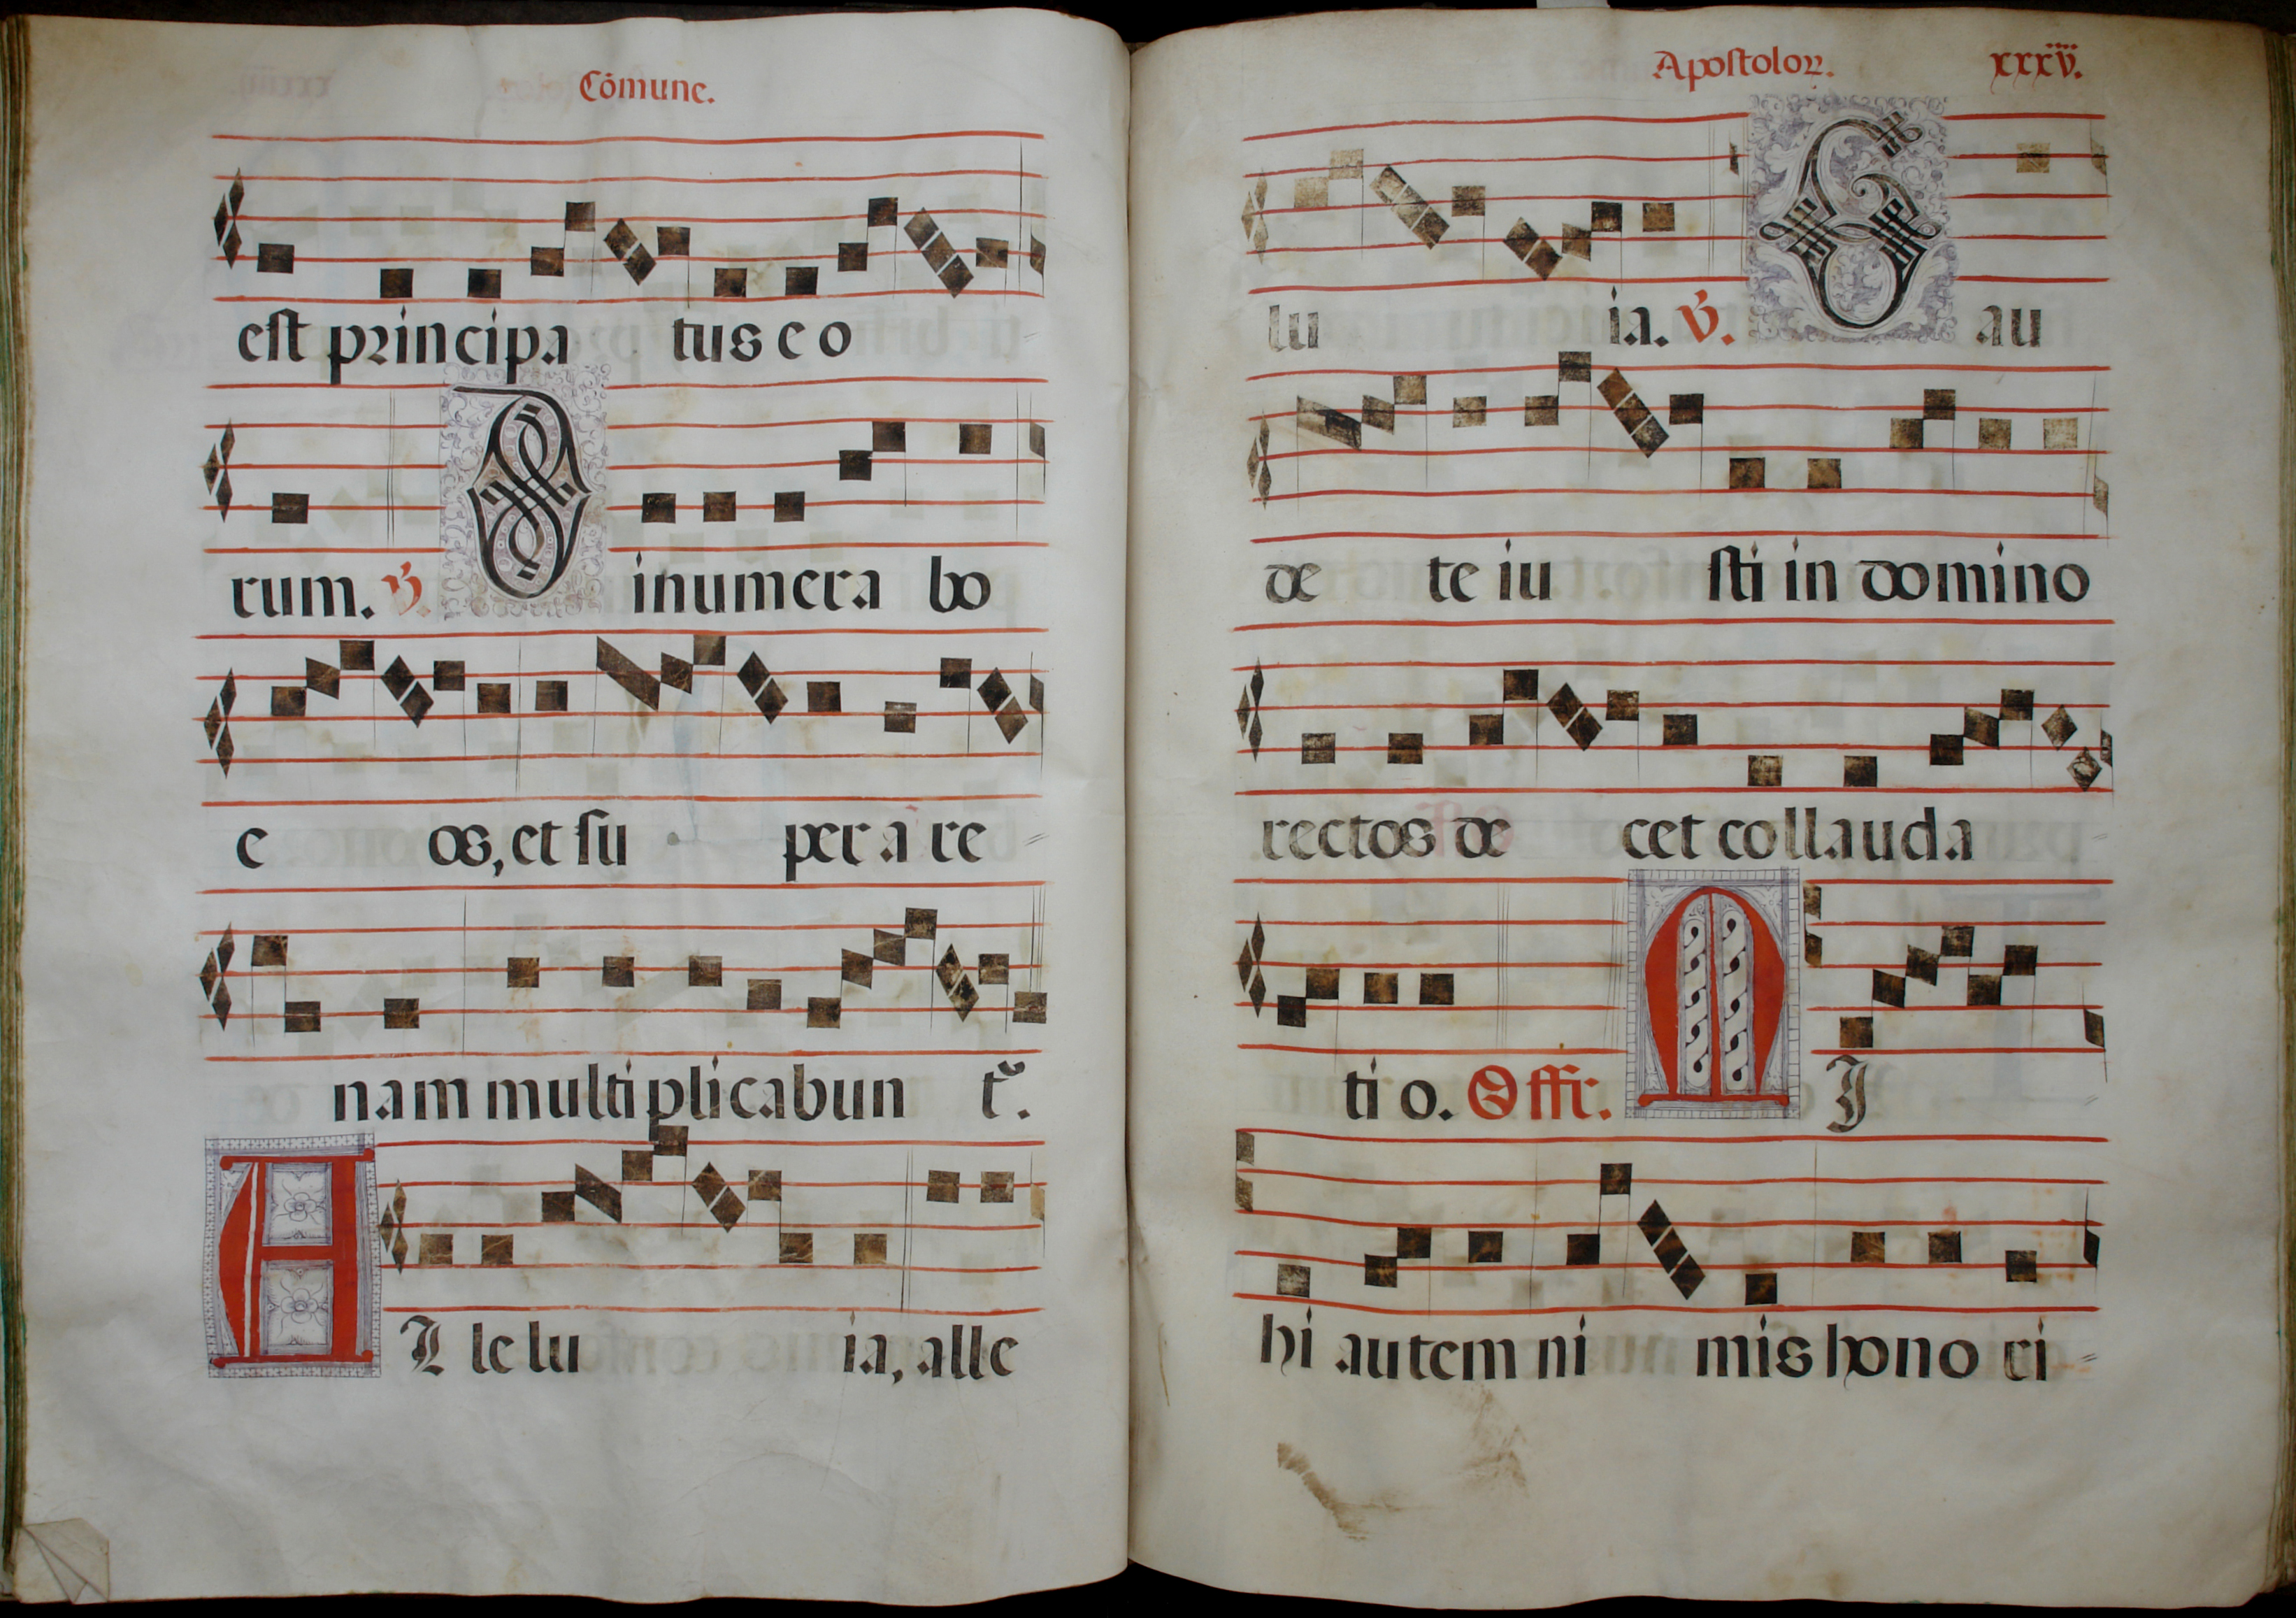 Cōmune.
est principa tus e o
rum. ℣. Dinumera bo
e os, et su per a re
nam multiplicabun tᷣ.
AL le lu ia, alle
Apostoloꝝ. xxxv.
lu ia. ℣. Gau
de te iu sti in domino
rectos de cet collauda
ti o. Offr. MJ
hi autem ni mis hono ri